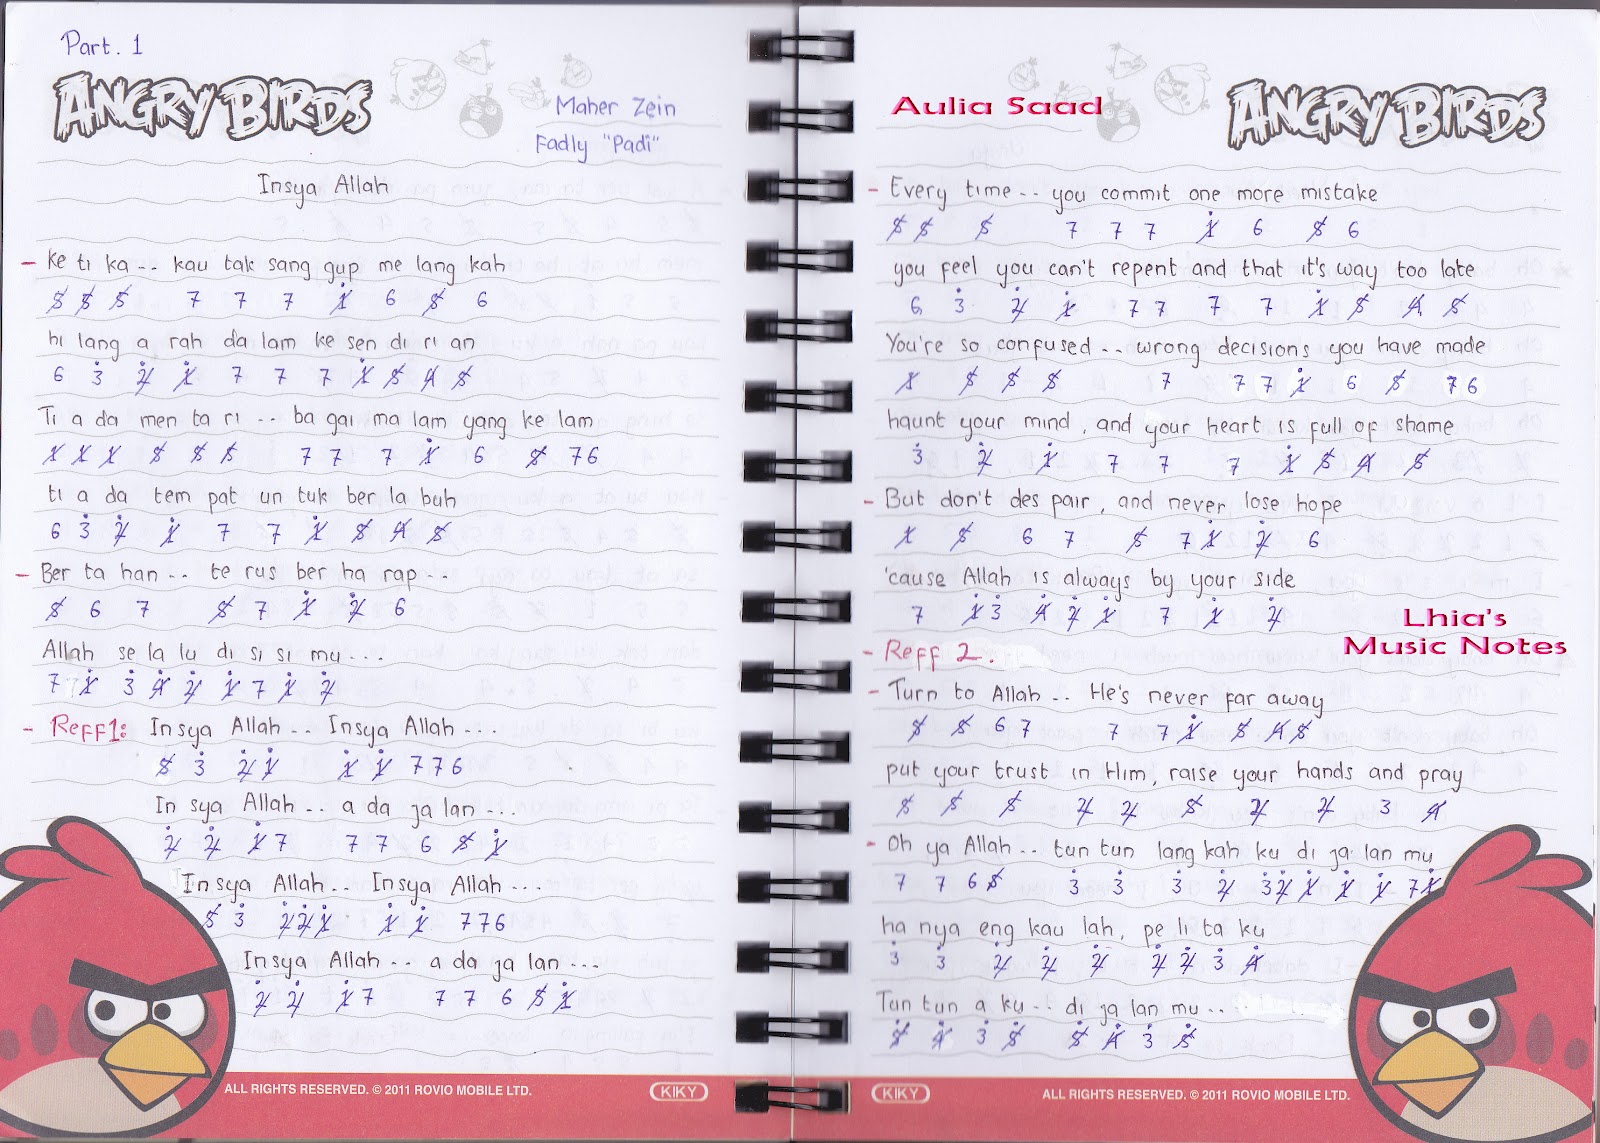 Part. 1
ANGRY BIRDS
Maher Zein
Fadly "Padi"
Insya Allah
- Ke ti ka -- kau tak sang gup me lang kah
5̸ 5̸ 5̸ 7 7 7 1̸̇ 6 5̸ 6
hi lang a rah da lam ke sen di ri an
6 3̇ 2̸̇ 1̸̇ 7 7 7 1̸̇ 5̸ 4̸ 5̸
Ti a da men ta ri -- ba gai ma lam yang ke lam
1̸ 1̸ 1̸ 5̸ 5̸ 5̸ 7 7 7 1̸̇ 6 5̸ 7 6
ti a da tem pat un tuk ber la buh
6 3̇ 2̸̇ 1̸̇ 7 7 1̸̇ 5̸ 4̸ 5̸
- Ber ta han -- te rus ber ha rap --
5̸ 6 7 5̸ 7 1̸̇ 2̸̇ 6
Allah se la lu di si si mu ...
7 1̸̇ 3̇ 4̸̇ 2̸̇ 1̸̇ 7 1̸̇ 2̸̇
- Reff1: Insya Allah -- Insya Allah ...
5̸ 3̇ 2̸̇ 1̸̇ 1̸̇ 1̸̇ 7 7 6
In sya Allah -- a da ja lan ...
2̸̇ 2̸̇ 1̸̇ 7 7 7 6 5̸ 1̸̇
Insya Allah -- Insya Allah ...
5̸ 3̇ 2̸̇ 2̸̇ 1̸̇ 1̸̇ 1̸̇ 7 7 6
Insya Allah -- a da ja lan ...
2̸̇ 2̸̇ 1̸̇ 7 7 7 6 5̸ 1̸̇
ALL RIGHTS RESERVED. © 2011 ROVIO MOBILE LTD.
KIKY
Aulia Saad
ANGRY BIRDS
- Every time -- you commit one more mistake
5̸ 5̸ 5̸ 7 7 7 1̸̇ 6 5̸ 6
you feel you can't repent and that it's way too late
6 3̇ 2̸̇ 1̸̇ 7 7 7 7 1̸̇ 5̸ 4̸ 5̸
You're so confused -- wrong decisions you have made
1̸ 5̸ 5̸ 5̸ 7 7 7 1̸̇ 6 5̸ 7 6
haunt your mind, and your heart is full of shame
3̇ 2̸̇ 1̸̇ 7 7 7 1̸̇ 5̸ 4̸ 5̸
- But don't des pair, and never lose hope
1̸ 5̸ 6 7 5̸ 7 1̸̇ 2̸̇ 6
'cause Allah is always by your side
7 1̸̇ 3̇ 4̸̇ 2̸̇ 1̸̇ 7 1̸̇ 2̸̇
Lhia's
Music Notes
- Reff 2.
- Turn to Allah -- He's never far away
5̸ 5̸ 6 7 7 7 1̸̇ 5̸ 4̸ 5̸
put your trust in Him, raise your hands and pray
5̸ 5̸ 5̸ 2̸ 2̸ 5̸ 2̸ 2̸ 3 4̸
- Oh ya Allah -- tun tun lang kah ku di ja lan mu
7 7 6 5̸ 3̇ 3̇ 3̇ 2̸̇ 3̇ 2̸̇ 1̸̇ 1̸̇ 1̸̇ 7 1̸̇
ha nya eng kau lah, pe li ta ku
3̇ 3̇ 2̸̇ 2̸̇ 2̸̇ 2̸̇ 2̸̇ 3̇ 4̸̇
Tun tun a ku -- di ja lan mu --
5̸̇ 4̸̇ 3̇ 5̸̇ 5̸̇ 4̸̇ 3̇ 5̸̇
KIKY
ALL RIGHTS RESERVED. © 2011 ROVIO MOBILE LTD.